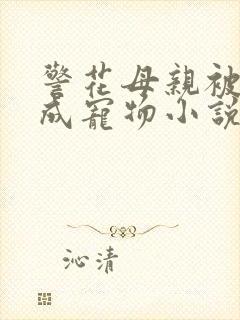 警花母親被
成寵物小説
沁清